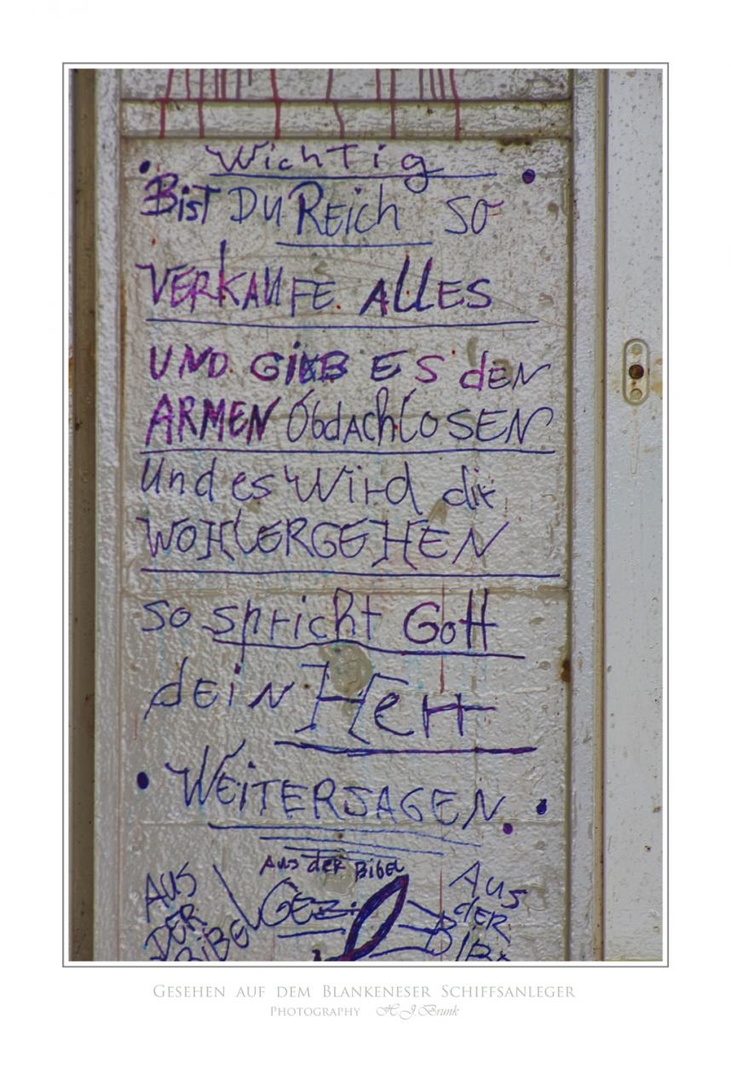 Wichtig
BisT DU REich so
VERKAUFE ALLES
UND GIEB ES dEN
ARMEN ObdAchLOSEN
Und es Wird dir
WOHLERGEHEN
so spricht Gott
dEIN HErr
WEITERSAGEN
Aus der BibEL
AUS DER BiBEL
GEZ.
Aus dER BIBE
GESEHEN AUF DEM BLANKENESER SCHIFFSANLEGER
PHOTOGRAPHY H J Brunk